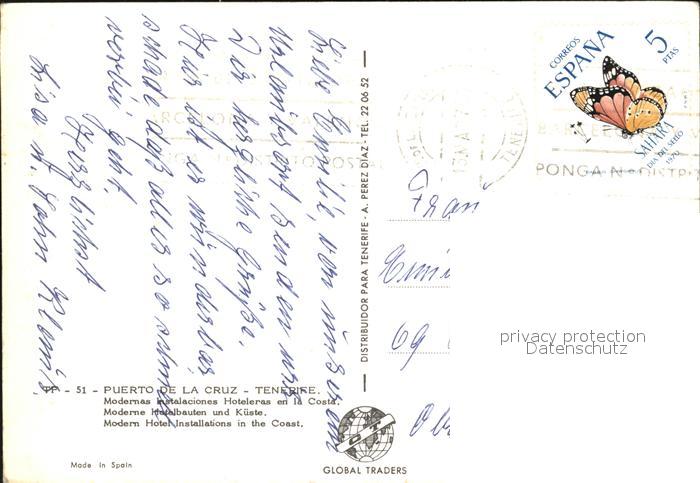 Liebe Emilie, von unserem
Urlaubsort senden wir
Dir herzliche Grüße.
Hier ist es wunderbar,
schade daß alles so schnell
vorbei geht.
Herzlichst
Lisa
CORREOS
ESPAÑA
5
PTAS
SAHARA
DIA DEL SELLO
1970
TENERIFE
PONGA Nº DISTRI
DISTRIBUIDOR PARA TENERIFE - A. PEREZ DIAZ - TEL. 22 06 52
Frau
Emi
69
Ob
privacy protection
Datenschutz
TF - 51 - PUERTO DE LA CRUZ - TENERIFE.
Modernas Instalaciones Hoteleras en la Costa.
Moderne Hotelbauten und Küste.
Modern Hotel Installations in the Coast.
Made in Spain
GLOBAL TRADERS